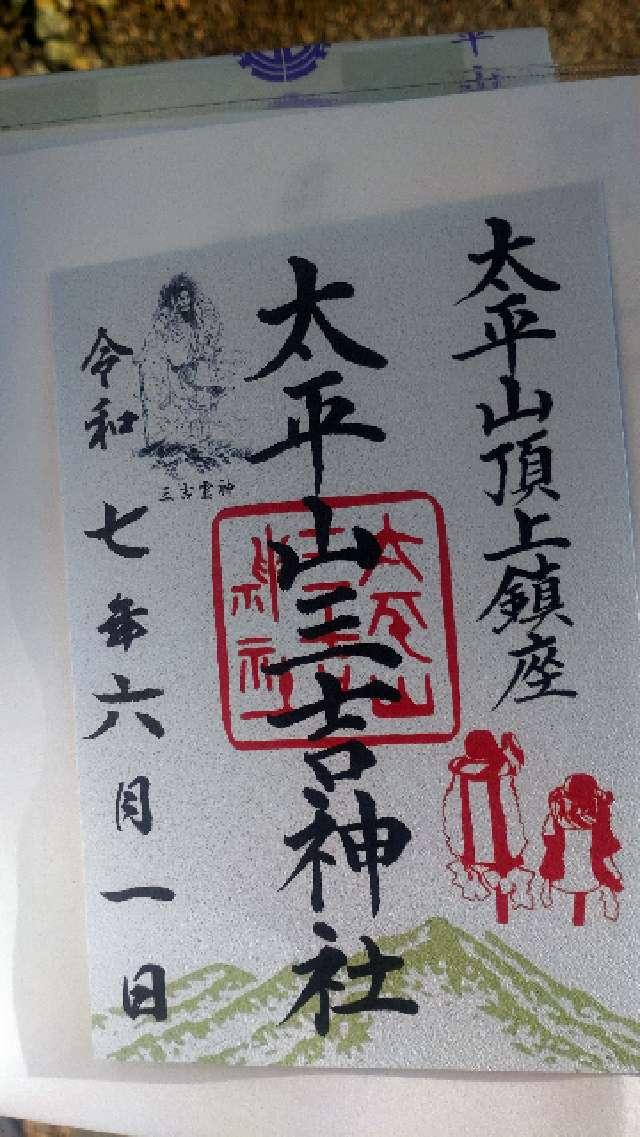 太平山頂上鎮座
太平山三吉神社
太平山
三吉
神社
三吉霊神
令和七年六月一日
平